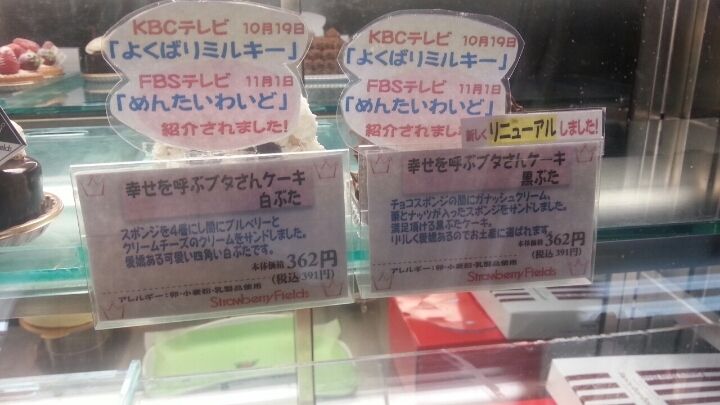 KBCテレビ 10月19日
「よくばりミルキー」
FBSテレビ 11月1日
「めんたいわいど」
紹介されました!
幸せを呼ぶブタさんケーキ
白ぶた
スポンジを4層にし間にブルベリーと
クリームチーズのクリームをサンドしました。
愛嬌ある可愛い四角い白ぶたです。
本体価格 362円
(税込 391円)
アレルギー:卵・小麦粉・乳製品使用
Strawberry Fields
KBCテレビ 10月19日
「よくばりミルキー」
FBSテレビ 11月1日
「めんたいわいど」
紹介されまし
新しくリニューアルしました!
幸せを呼ぶブタさんケーキ
黒ぶた
チョコスポンジの間にガナッシュクリーム、
栗とナッツが入ったスポンジをサンドしました。
満足頂ける黒ぶたケーキ。
りりしく愛嬌あるのでお土産に喜ばれます。
本体価格 362円
(税込 391円)
アレルギー:卵・小麦粉・乳製品使用
Strawberry Fields